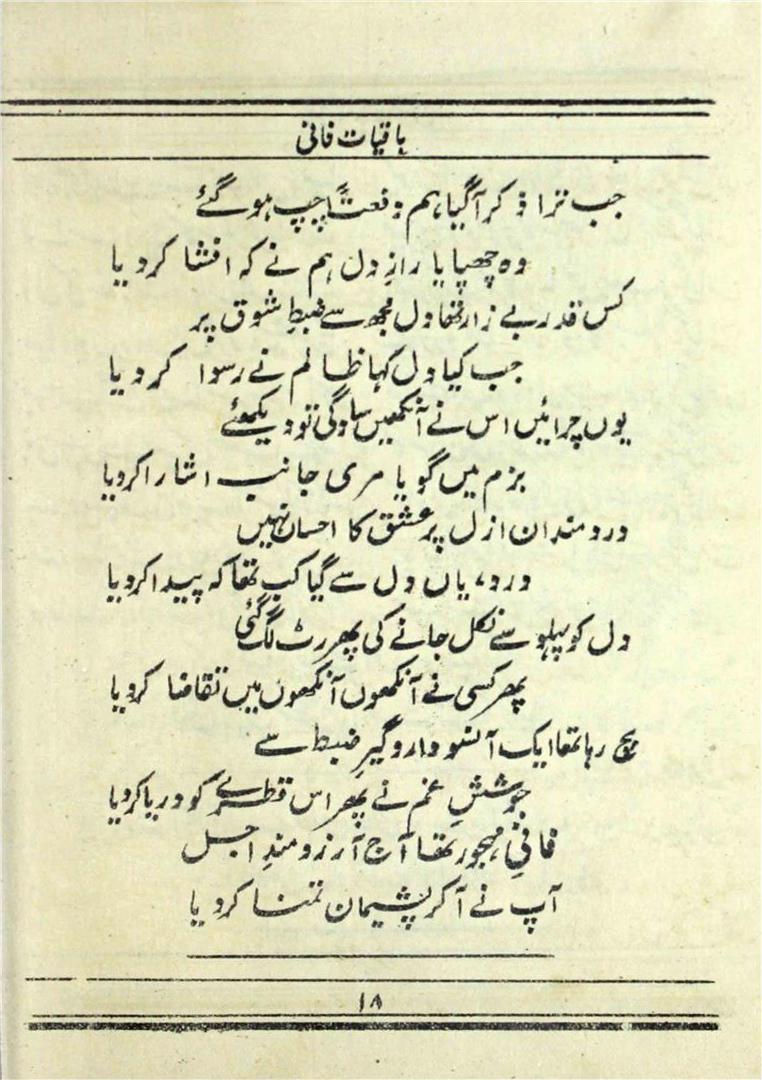 باقیات فانی
جب ترا ذکر آگیا، ہم دفعتاً چپ ہو گئے
وہ چھپایا رازِ دل ہم نے کہ افشا کر دیا
کس قدر بے زار تھا دل مجھ سے ضبطِ شوق پر
جب کیا دل کہا ظالم نے رسوا کر دیا
یوں چرائیں اس نے آنکھیں سادگی تو دیکھئے
بزم میں گویا مری جانب اشارا کر دیا
دردمندان ازل پر عشق کا احساں نہیں
درد، یاں دل سے گیا کب تھا کہ پیدا کر دیا
دل کو پہلو سے نکل جانے کی پھر رٹ لگ گئی
پھر کسی نے آنکھوں آنکھوں میں تقاضا کر دیا
بچ رہا تھا ایک آنسو دار و گیرِ ضبط سے
جوششِ غم نے پھر اس قطرے کو دریا کر دیا
فانیِ مہجور تھا آج آرزو مندِ اجل
آپ نے آکر پشیمان تمنا کر دیا
۱۸